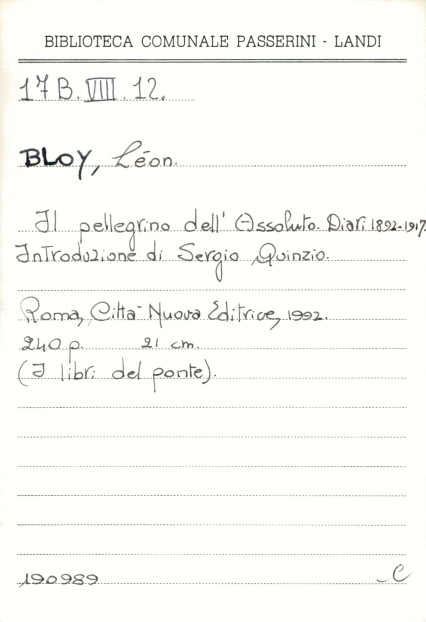 BIBLIOTECA COMUNALE PASSERINI - LANDI
17 B. VIII. 12.
BLOY, Léon.
Il pellegrino dell' Assoluto. Diari 1892-1917.
Introduzione di Sergio Quinzio.
Roma, Città Nuova Editrice, 1992.
240 p. 21 cm.
(I libri del ponte).
190989 C